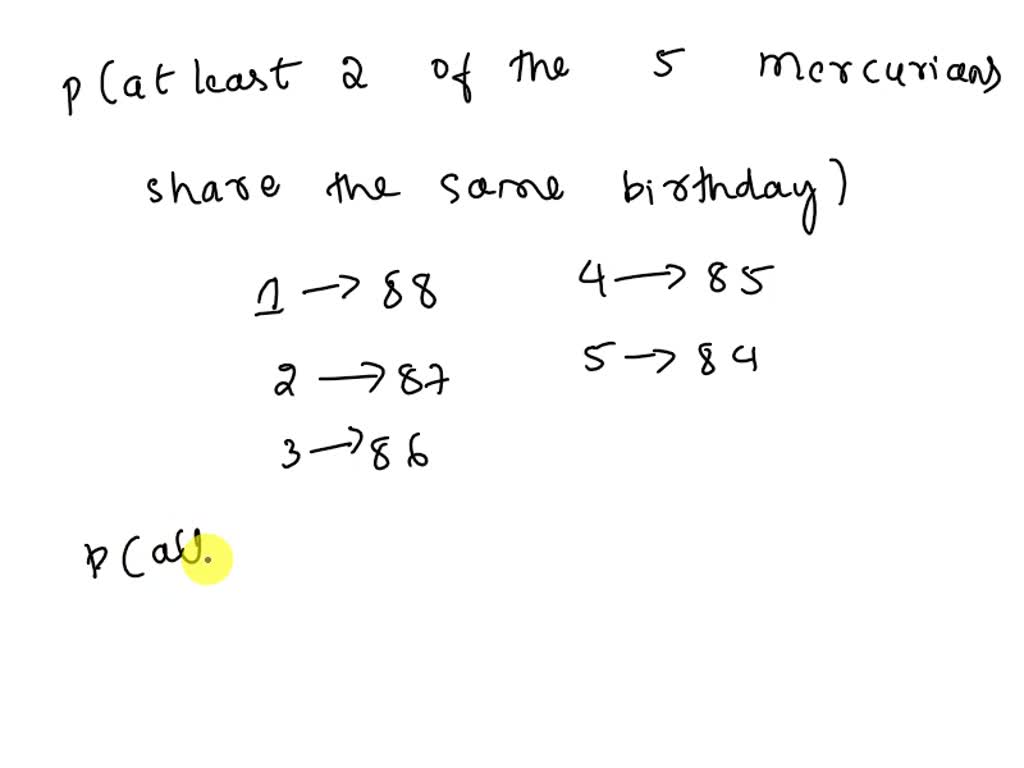 p(at least 2 of the 5 mercurians
share the same birthday)
1 → 88
2 → 87
3 → 86
4 → 85
5 → 84
p(all